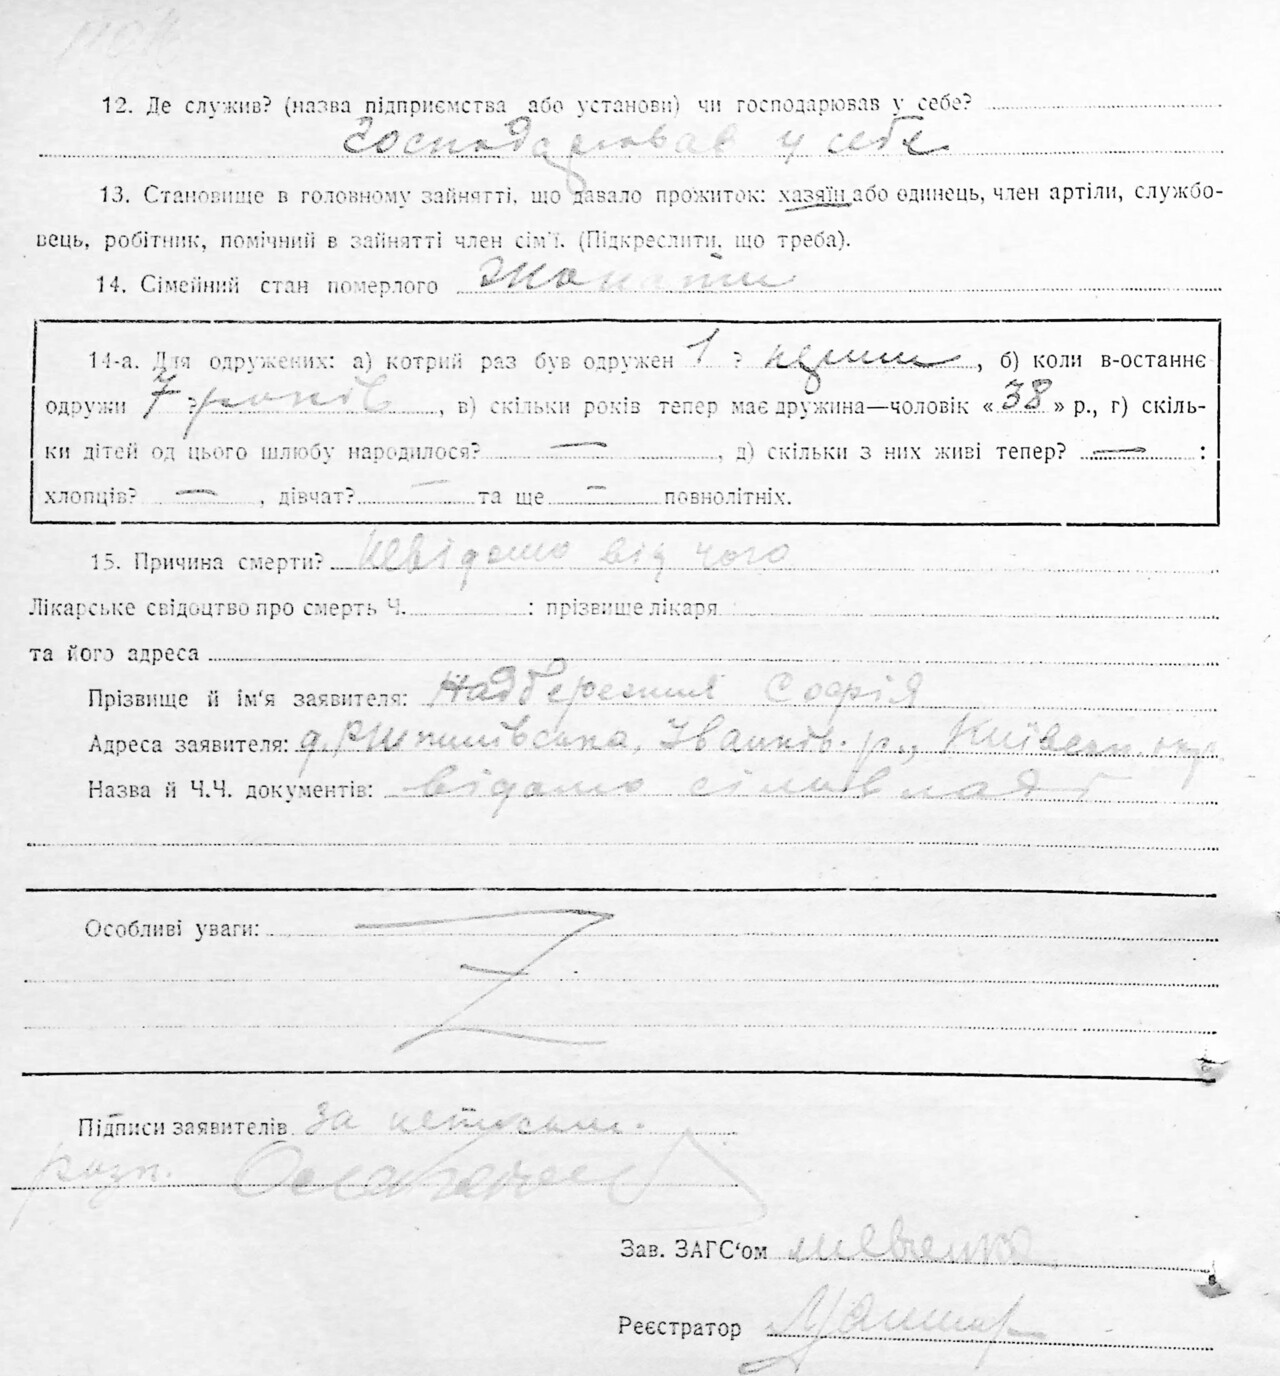 12. Де служив? (назва підприємства або установи) чи господарював у себе?
Господарював у себе
13. Становище в головному зайнятті, що давало прожиток: хазяїн або одинець, член артіли, службо-
вець, робітник, помічний в зайнятті член сім'ї. (Підкреслити, що треба).
14. Сімейний стан померлого жонати
14-а. Для одружених: а) котрий раз був одружен 1 ? перши, б) коли в-останнє
одружи 7 ? років, в) скільки років тепер має дружина—чоловік « 38 » р., г) скіль-
ки дітей од цього шлюбу народилося? —, д) скільки з них живі тепер? — :
хлопців? —, дівчат? — та ще — повнолітніх.
15. Причина смерти? Невідомо від чого
Лікарське свідоцтво про смерть Ч. : прізвище лікаря
та його адреса
Прізвище й ім'я заявителя: Надбережная Софія
Адреса заявителя: Іванків. р., Київськ. окр.
Назва й Ч.Ч. документів: відомо сільвладі
Особливі уваги:
Підписи заявителів За неписьм.
розп.
Зав. ЗАГС'ом Шевченко
Реєстратор